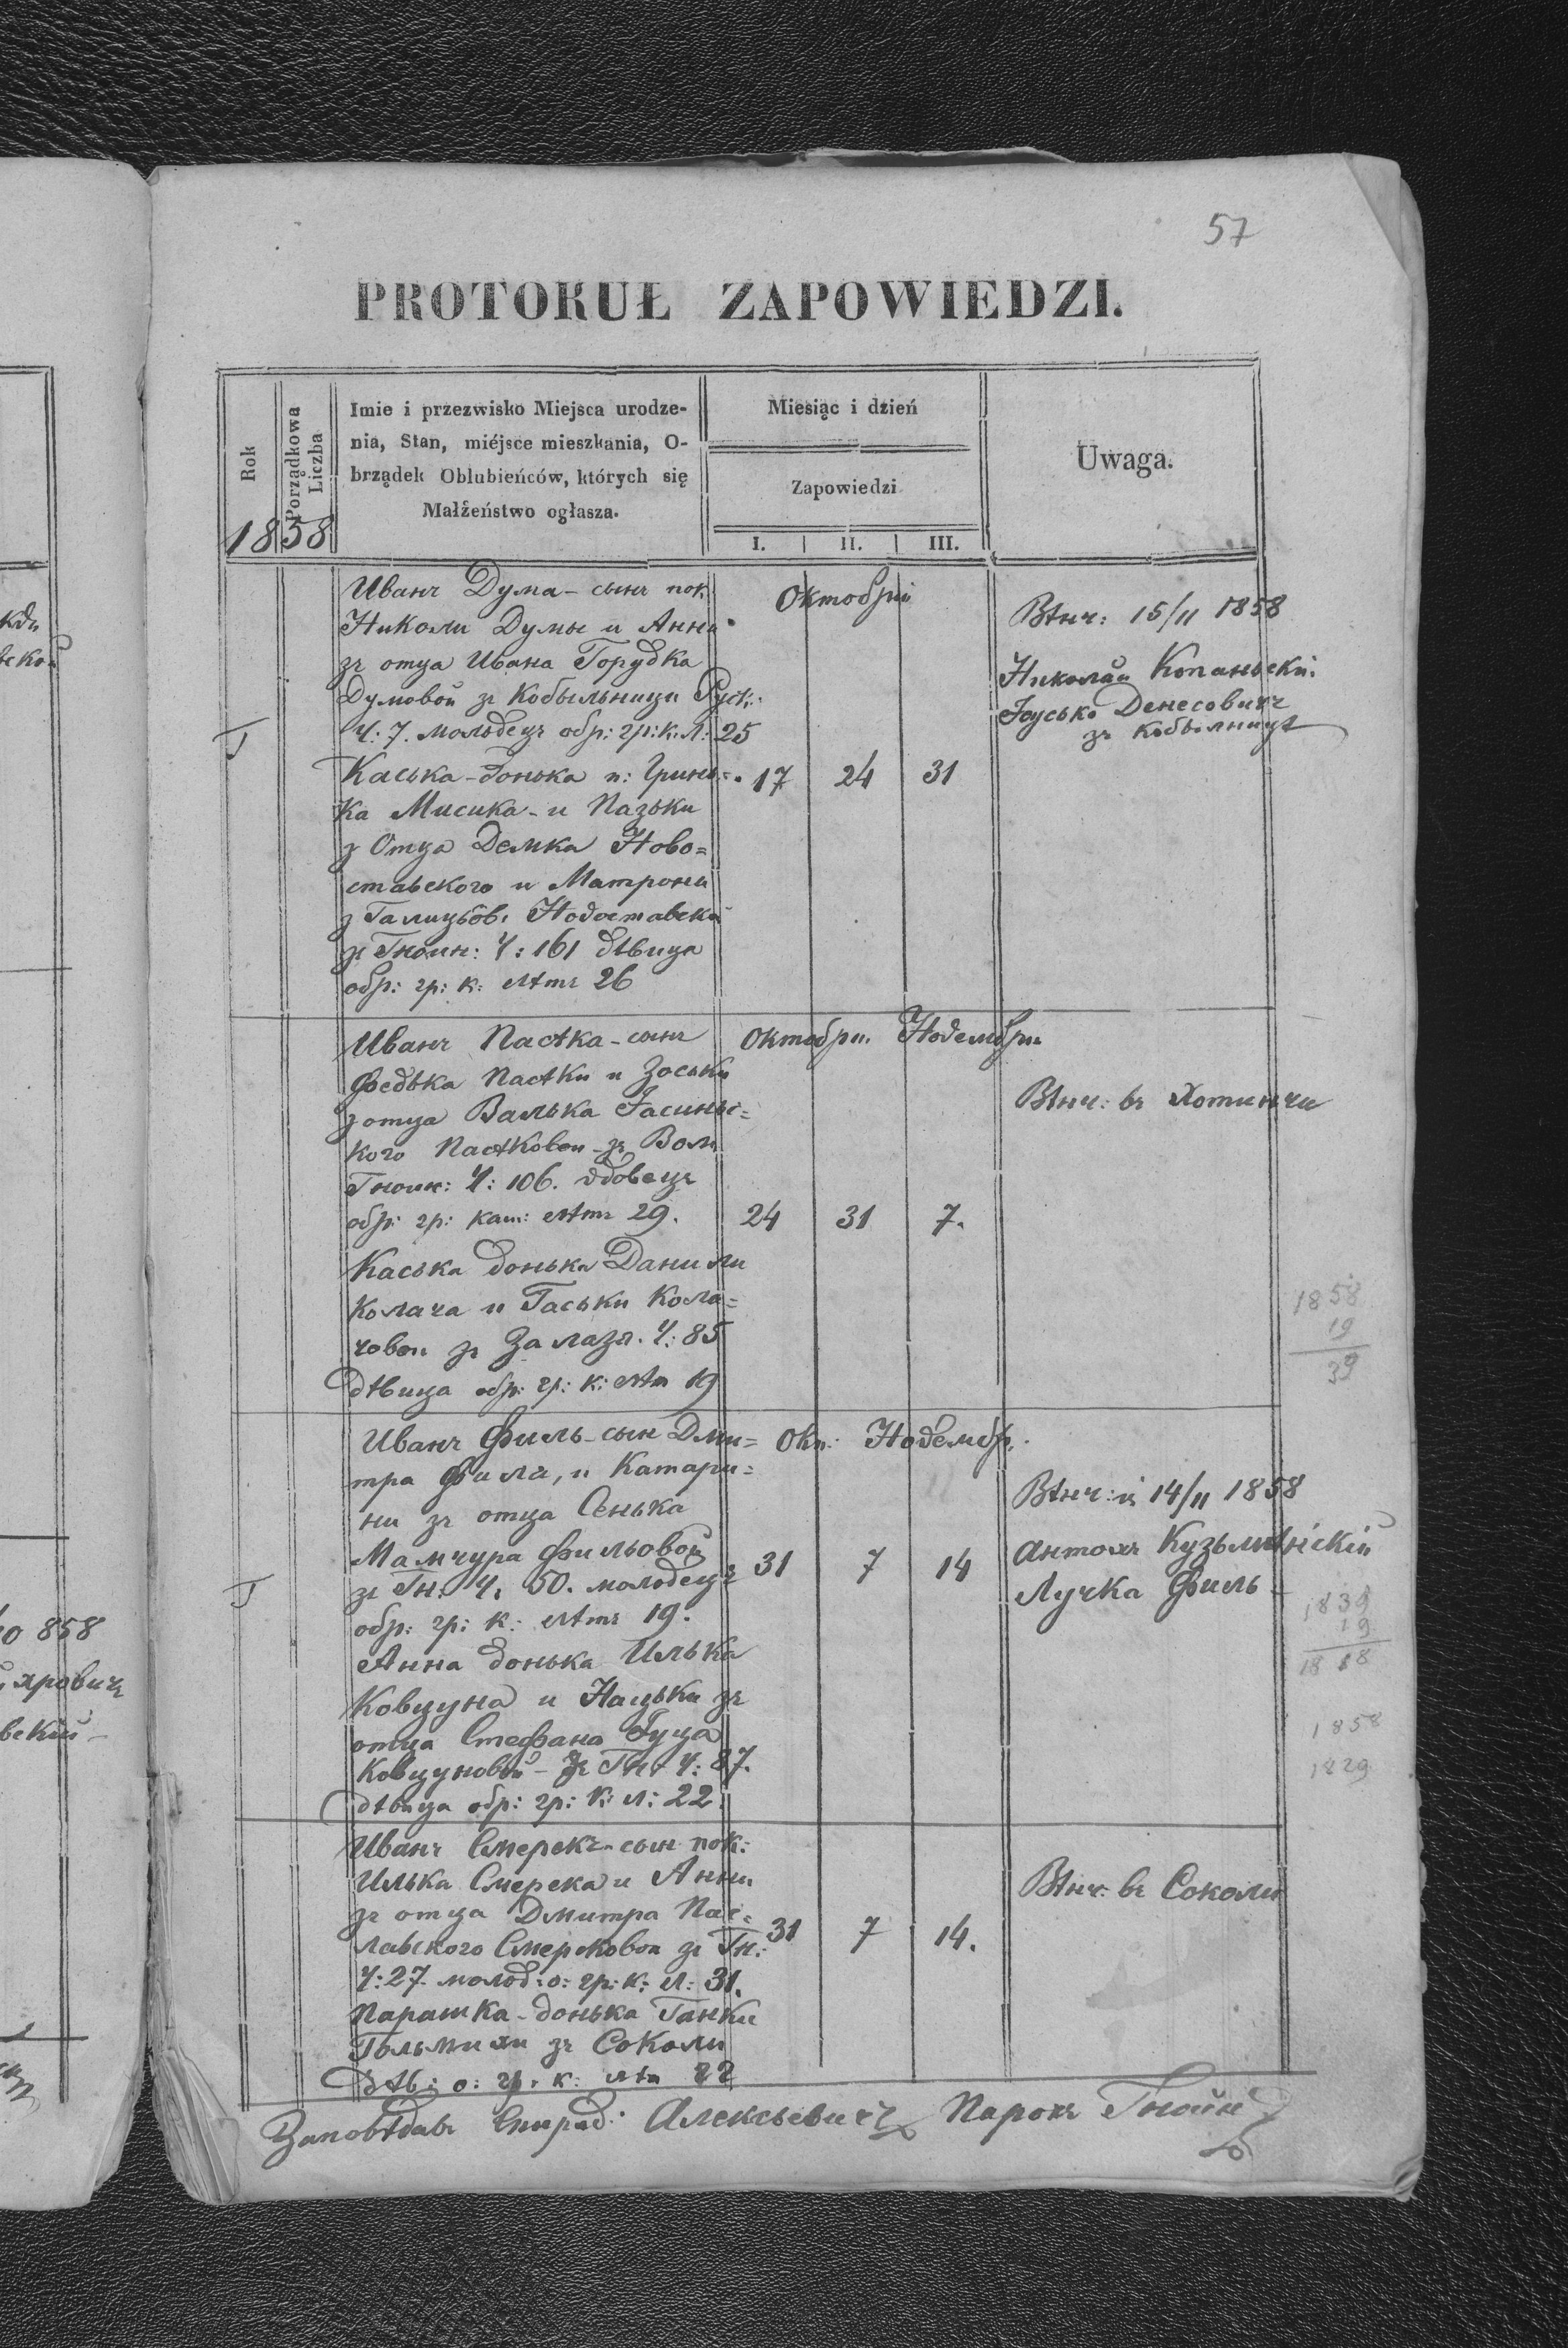 57
PROTOKUŁ ZAPOWIEDZI.
Rok
Porządkowa Liczba
1858
Imie i przezwisko Miejsca urodze-
nia, Stan, miéjsce mieszkania, O-
brządek Oblubieńców, których się
Małżeństwo ogłasza.
Miesiąc i dzień
Zapowiedzi
I. II. III.
Uwaga.
Иванъ Дума - сынъ пок:
Николи Думы и Анни
зъ отца Ивана Горудка
Думовои зъ Кобыльници Руск:
Ч: 7. мольдецъ обр: гр: к: л: 25
Каська - донька п: Гринь=
ка Мисика - и Пазьки
з Отца Демка Ново=
ставского и Матрони
з Галицьôв. Новоставскои
зъ Гноин: Ч: 161 дѣвица
обр: гр: к: лѣтъ 26
Октобрiи
17 24 31
Вѣнч: 15/11 1858
Николай Копаньский
Яусько Денесовичъ
зъ Кобылницѣ
Иванъ Пасѣка - сынъ
Федька Пасѣки и Зоськи
з отца Валька Ясинь=
кого Пасѣковои - зъ Воли
Гноин: Ч: 106. вдовецъ
обр: гр: кат: лѣтъ 29.
Каська донька Данили
Колача и Гаськи Кола=
човои зъ Залазя. Ч: 85
дѣвица обр: гр: к: лѣт 19
Октобри. Новембри
24 31 7.
Вѣнч: въ Хотинчи
1858
19
39
Иванъ Филь - сын Дми=
тра Филя, и Катари=
ни зъ отца Сенька
Мамчура Фильовои
зъ Гн: Ч. 50. молодецъ
обр: гр: к: лѣтъ 19.
Анна донька Илька
Ковцуна и Нацьки зъ
отца Стефана Гуца
Ковцуновои - зъ Гн: Ч: 87.
дѣвица обр: гр: к: л: 22.
Окт: Новембр.
31 7 14
Вѣнч: 14/11 1858
Антонъ Кузьминскiй
Лучка Филь
1839
19
1818
1858
1829
Иванъ Смерекъ - сын пок:
Илька Смерека и Анни
зъ отца Дмитра Пас=
лавского Смерековои зъ Гн:
Ч: 27. молод: о: гр: к: л: 31.
Парашка - донька Ганки
зъ Соколи
дѣв: о: гр. к: лѣт 22
31 7 14.
Вѣнч: въ Соколи
Заповѣдавъ Спирид: Алексѣевичъ Парохъ Гнойн